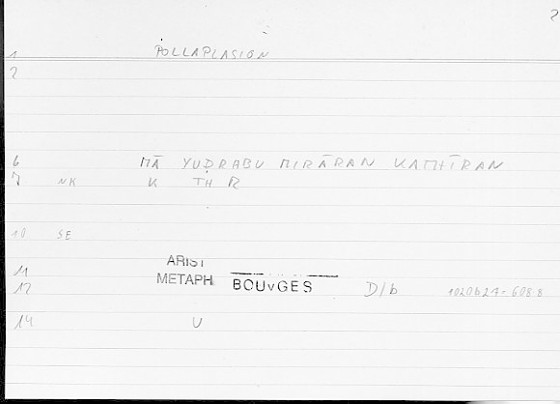 2
1 POLLAPLASION
2
6 MĀ YUḌRABU MIRĀRAN KATHĪRAN
7 NK K TH R
10 SE
ARIST
11
METAPH BOUvGES
12 D/b 1020b24-608.8
14 U